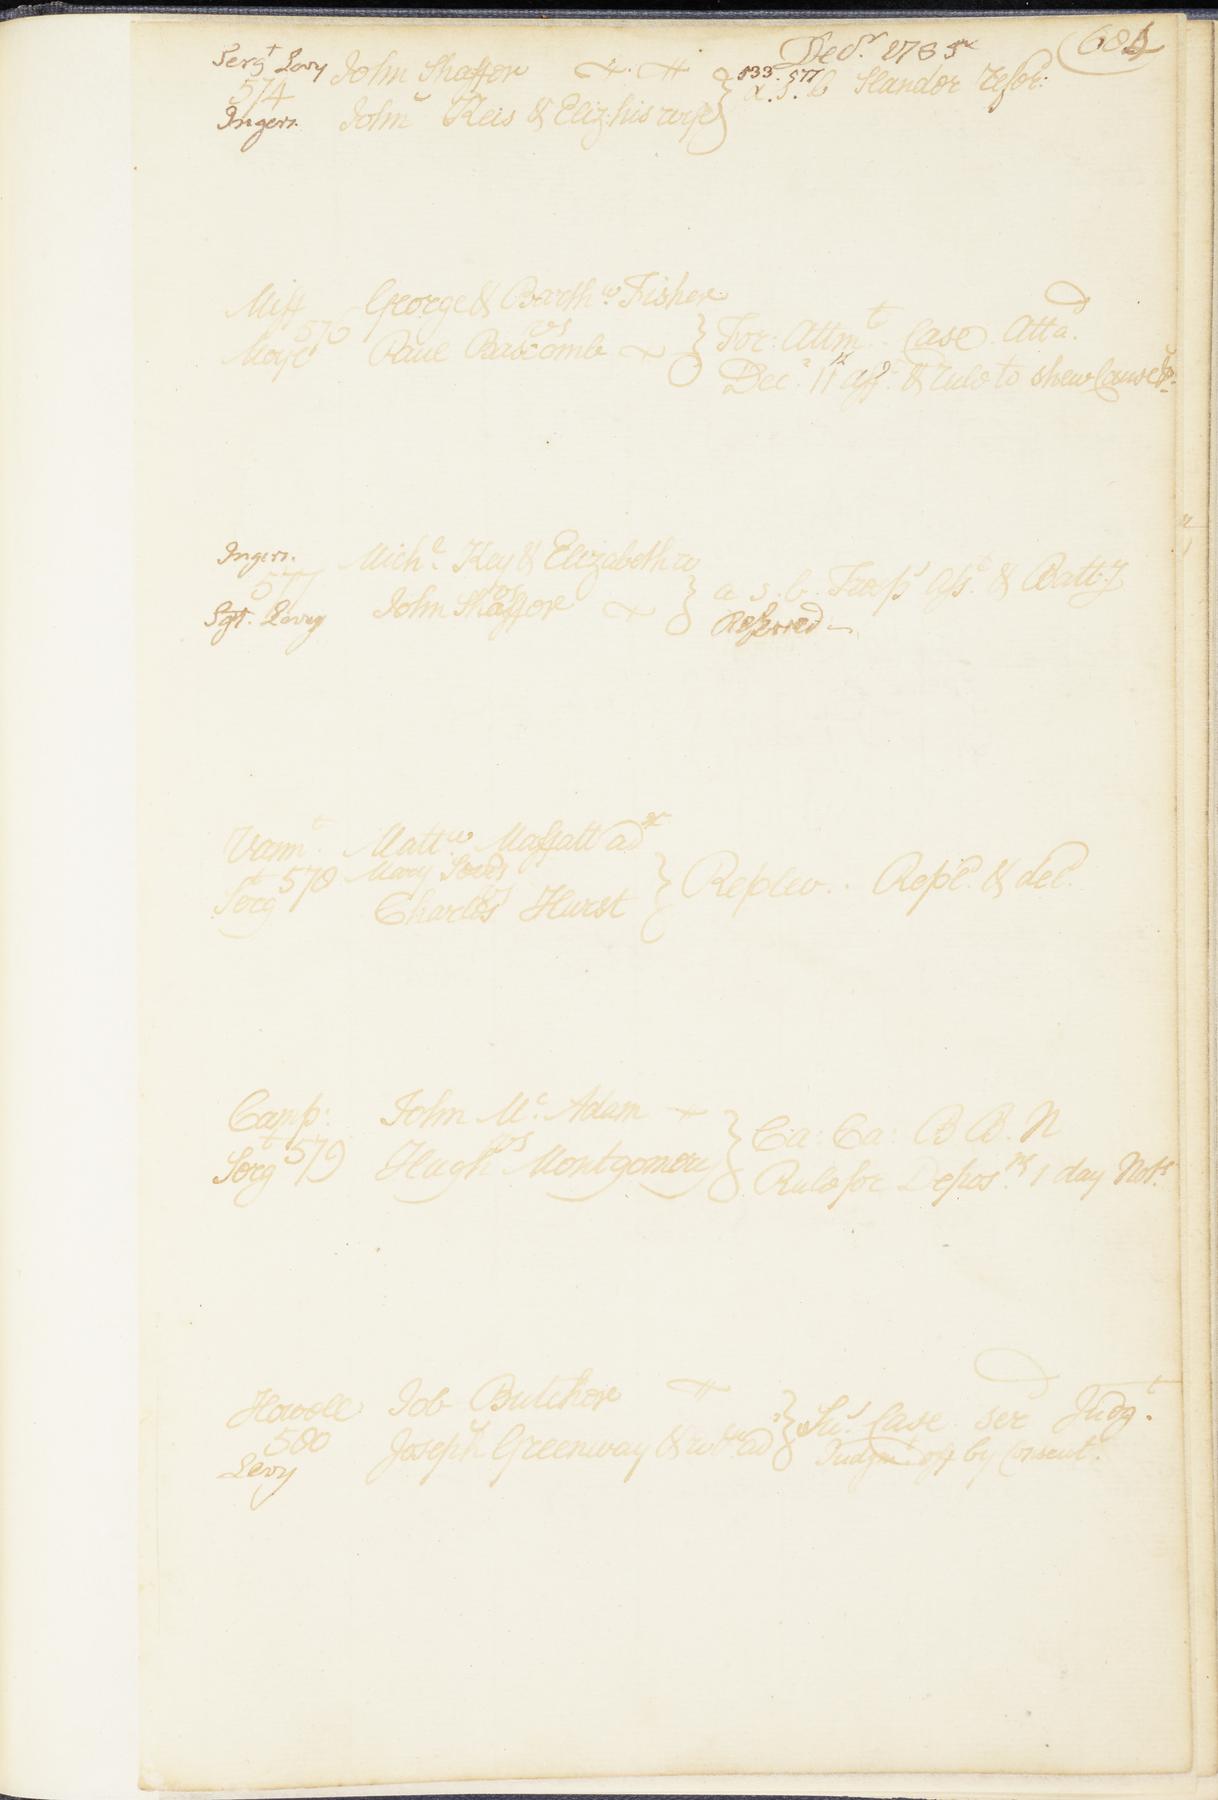 Decr. 1785 684
Sergt Levy John Shaffer 533. 577
574 a. s. b Slander refer.
Ingers. John Keis & Eliz: his wife
Miff George & Barthw Fisher
576 vs For: Attmt. Case Attad.
Moyl Paul Bascomb
Decr 11 aff. & rule to shew Cause &c.
Ingers. Michl. Key & Elizabeth w
577 vs a. s. b. Tresps Asst. & Batty
Sgt. Levy John Shaffer Referred
Vannt. Mattw. Maffatt adr
578 Mary Sords Replev. Repl. & del.
Sergt Charles Hurst
vs
Camp: John Mc. Adam Ca: Ca: B B. N
579 vs
Sergt Hugh Montgomery Rule for Depos.ns 1 day Not.
Howell Job Butcher
580 Sus. Case ser Judgt.
Levy Joseph Greenway & ad Judgmt. off by Consent.